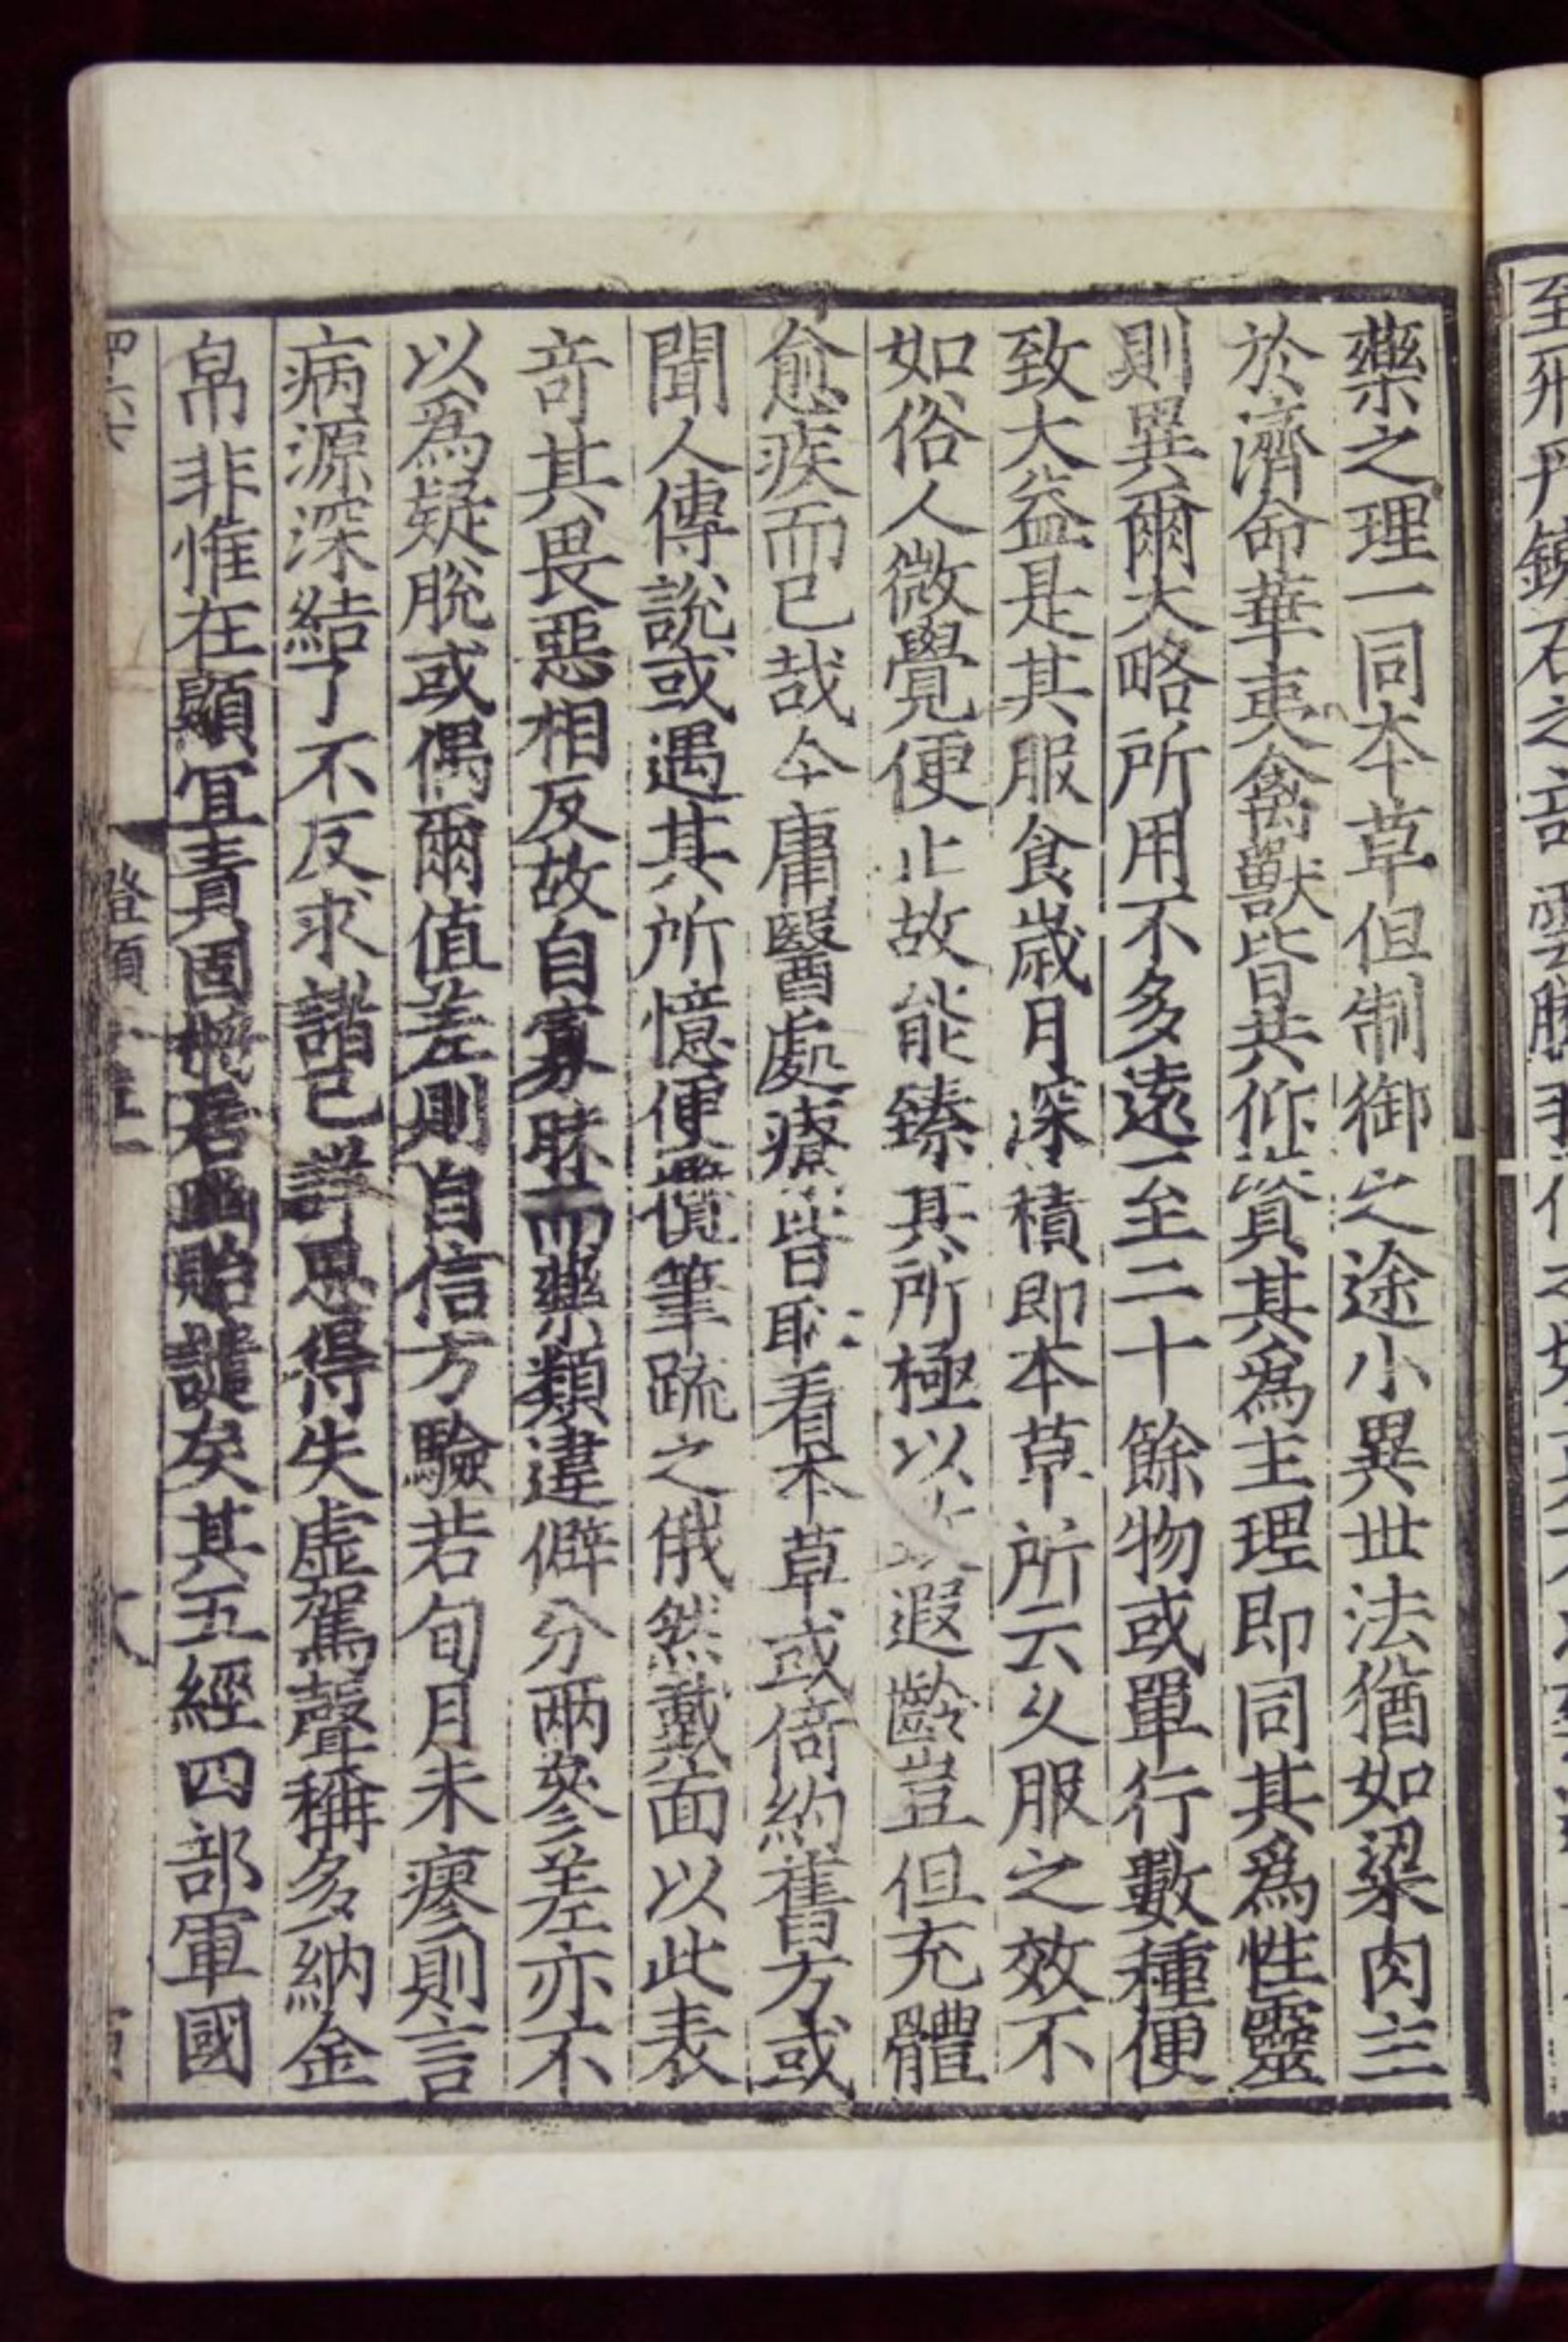 藥之理一同本草但制御之途小異世法猶如粱肉主
於濟命華夷禽獸皆共仰資其爲主理即同其爲性靈
則異爾大略所用不多遠至二十餘物或單行數種便
致大益是其服食歳月深積即本草所云乆服之效不
如俗人微覺便止故能臻其所極以致遐齡豈但充體
愈疾而已哉今庸醫處療皆恥看本草或倚約舊方或
聞人傳說或遇其所憶便攬筆疏之俄然戴面以此表
竒其畏惡相反故自寡昧而藥類違僻分兩參差亦不
以爲疑脫或偶爾值差則自信方驗若旬月未瘳則言
病源深結了不反求諸己詳思得失虛駕聲稱多納金
帛非惟在顯冝責固將居幽貽譴矣其五經四部軍國
至飛丹鍊石之竒雲騰